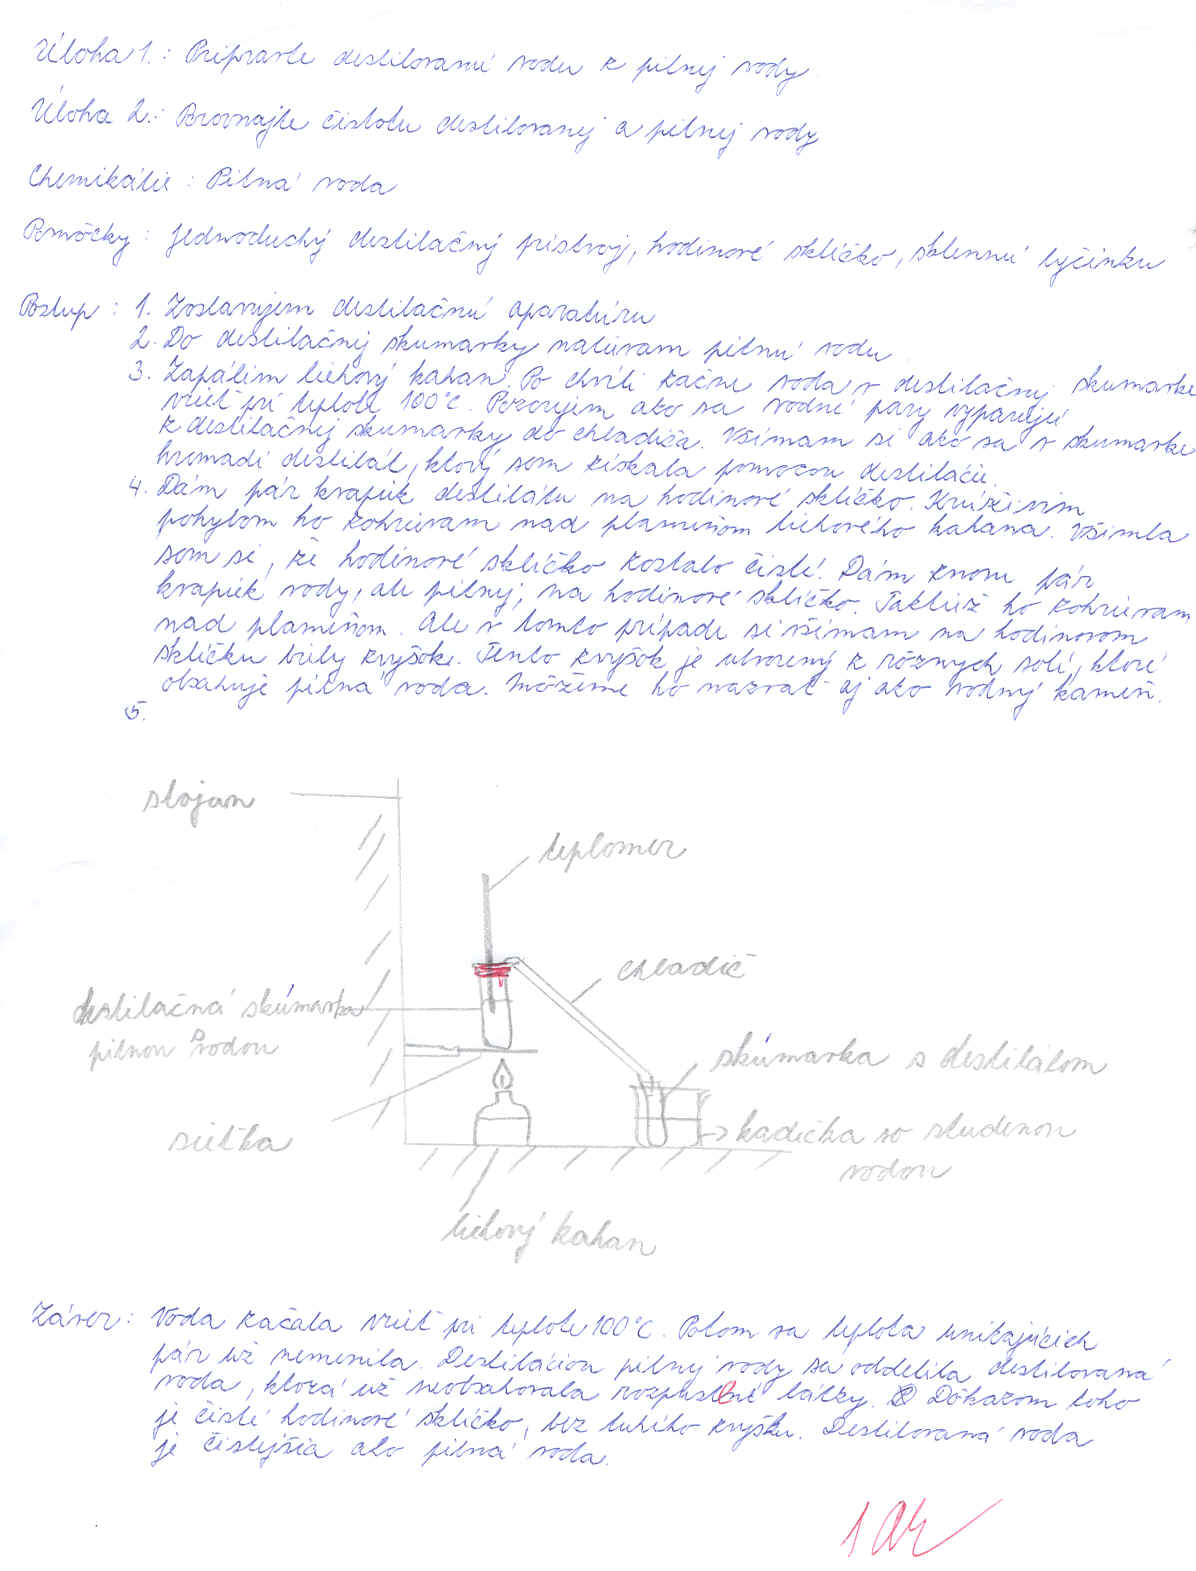 Úloha 1.: Pripravte destilovanú vodu z pitnej vody.
Úloha 2.: Porovnajte čistotu destilovanej a pitnej vody
Chemikálie : Pitná voda
Pomôcky : jednoduchý destilačný prístroj, hodinové sklíčko, sklennú tyčinku
Postup : 1. Zostavujem destilačnú aparatúru
2. Do destilačnej skumavky nalievam pitnú vodu.
3. Zapálim liehový kahan. Po chvíli začne voda v destilačnej skumavke
vrieť pri teplote 100°C. Pozorujem ako sa vodné pary vyparujú
z destilačnej skumavky do chladiča. Všímam si ako sa v skumavke
hromadí destilát, ktorý som získala pomocou destilácie.
4. Dám pár kvapiek destilátu na hodinové sklíčko. Krúživím
pohybom ho zohrievam nad plameňom liehového kahana. Všimla
som si, že hodinové sklíčko zostalo čisté. Dám znovu pár
kvapiek vody, ale pitnej, na hodinové sklíčko. Taktiež ho zohrievam
nad plameňom. Ale v tomto prípade si všímam na hodinovom
sklíčku biely zvyšok. Tento zvyšok je utvorený z rôznych solí, ktoré
obsahuje pitná voda. Môžeme ho nazvať aj ako vodný kameň.
5.
stojan
teplomer
chladič
destilačná skúmavka
pitnou vodou
skúmavka s destilátom
sieťka
kadička so studenou
vodou
liehový kahan
Záver : Voda začala vrieť pri teplote 100°C. Potom sa teplota unikajúcich
pár už nemenila. Destiláciou pitnej vody sa oddelila destilovaná
voda, ktorá už neobsahovala rozpustené látky. Dôkazom toho
je čisté hodinové sklíčko, bez tuhého zvyšku. Destilovaná voda
je čistejšia ako pitná voda.
1